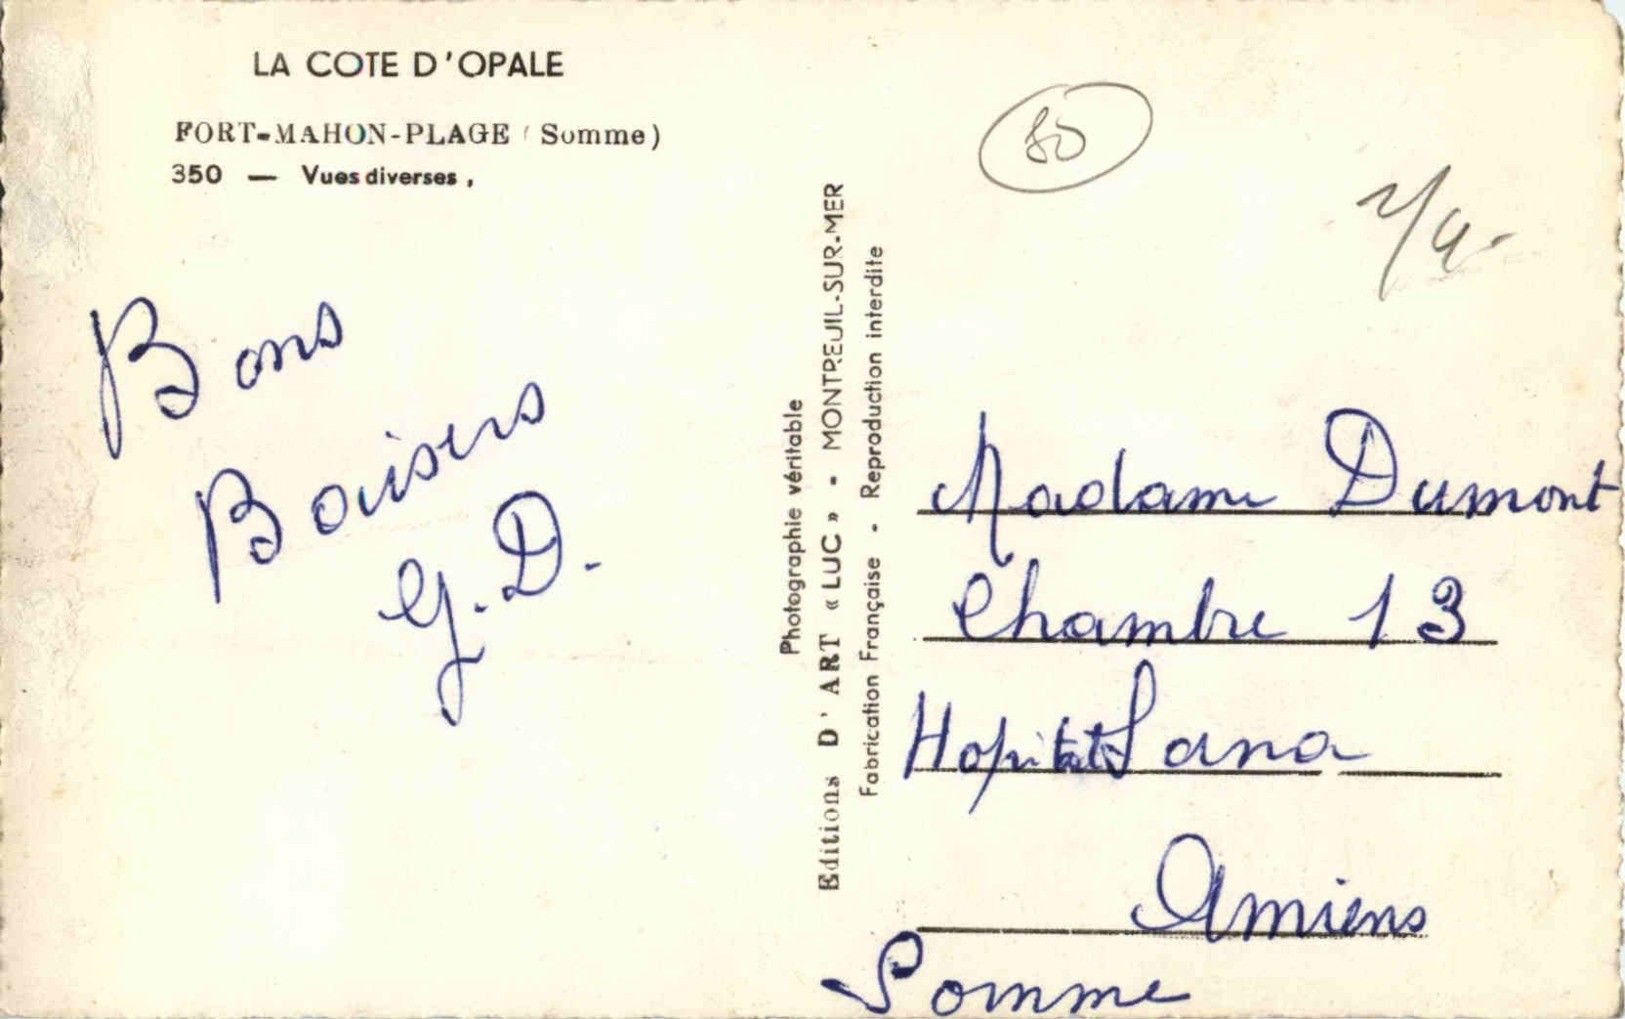 LA COTE D'OPALE
FORT-MAHON-PLAGE (Somme)
350 — Vues diverses,
Bons
Baisers
G.D.
Photographie véritable
Editions D'ART « LUC » - MONTREUIL-SUR-MER
Fabrication Française - Reproduction interdite
80
Madame Dumont
Chambre 13
Hopital Sana
Amiens
Somme